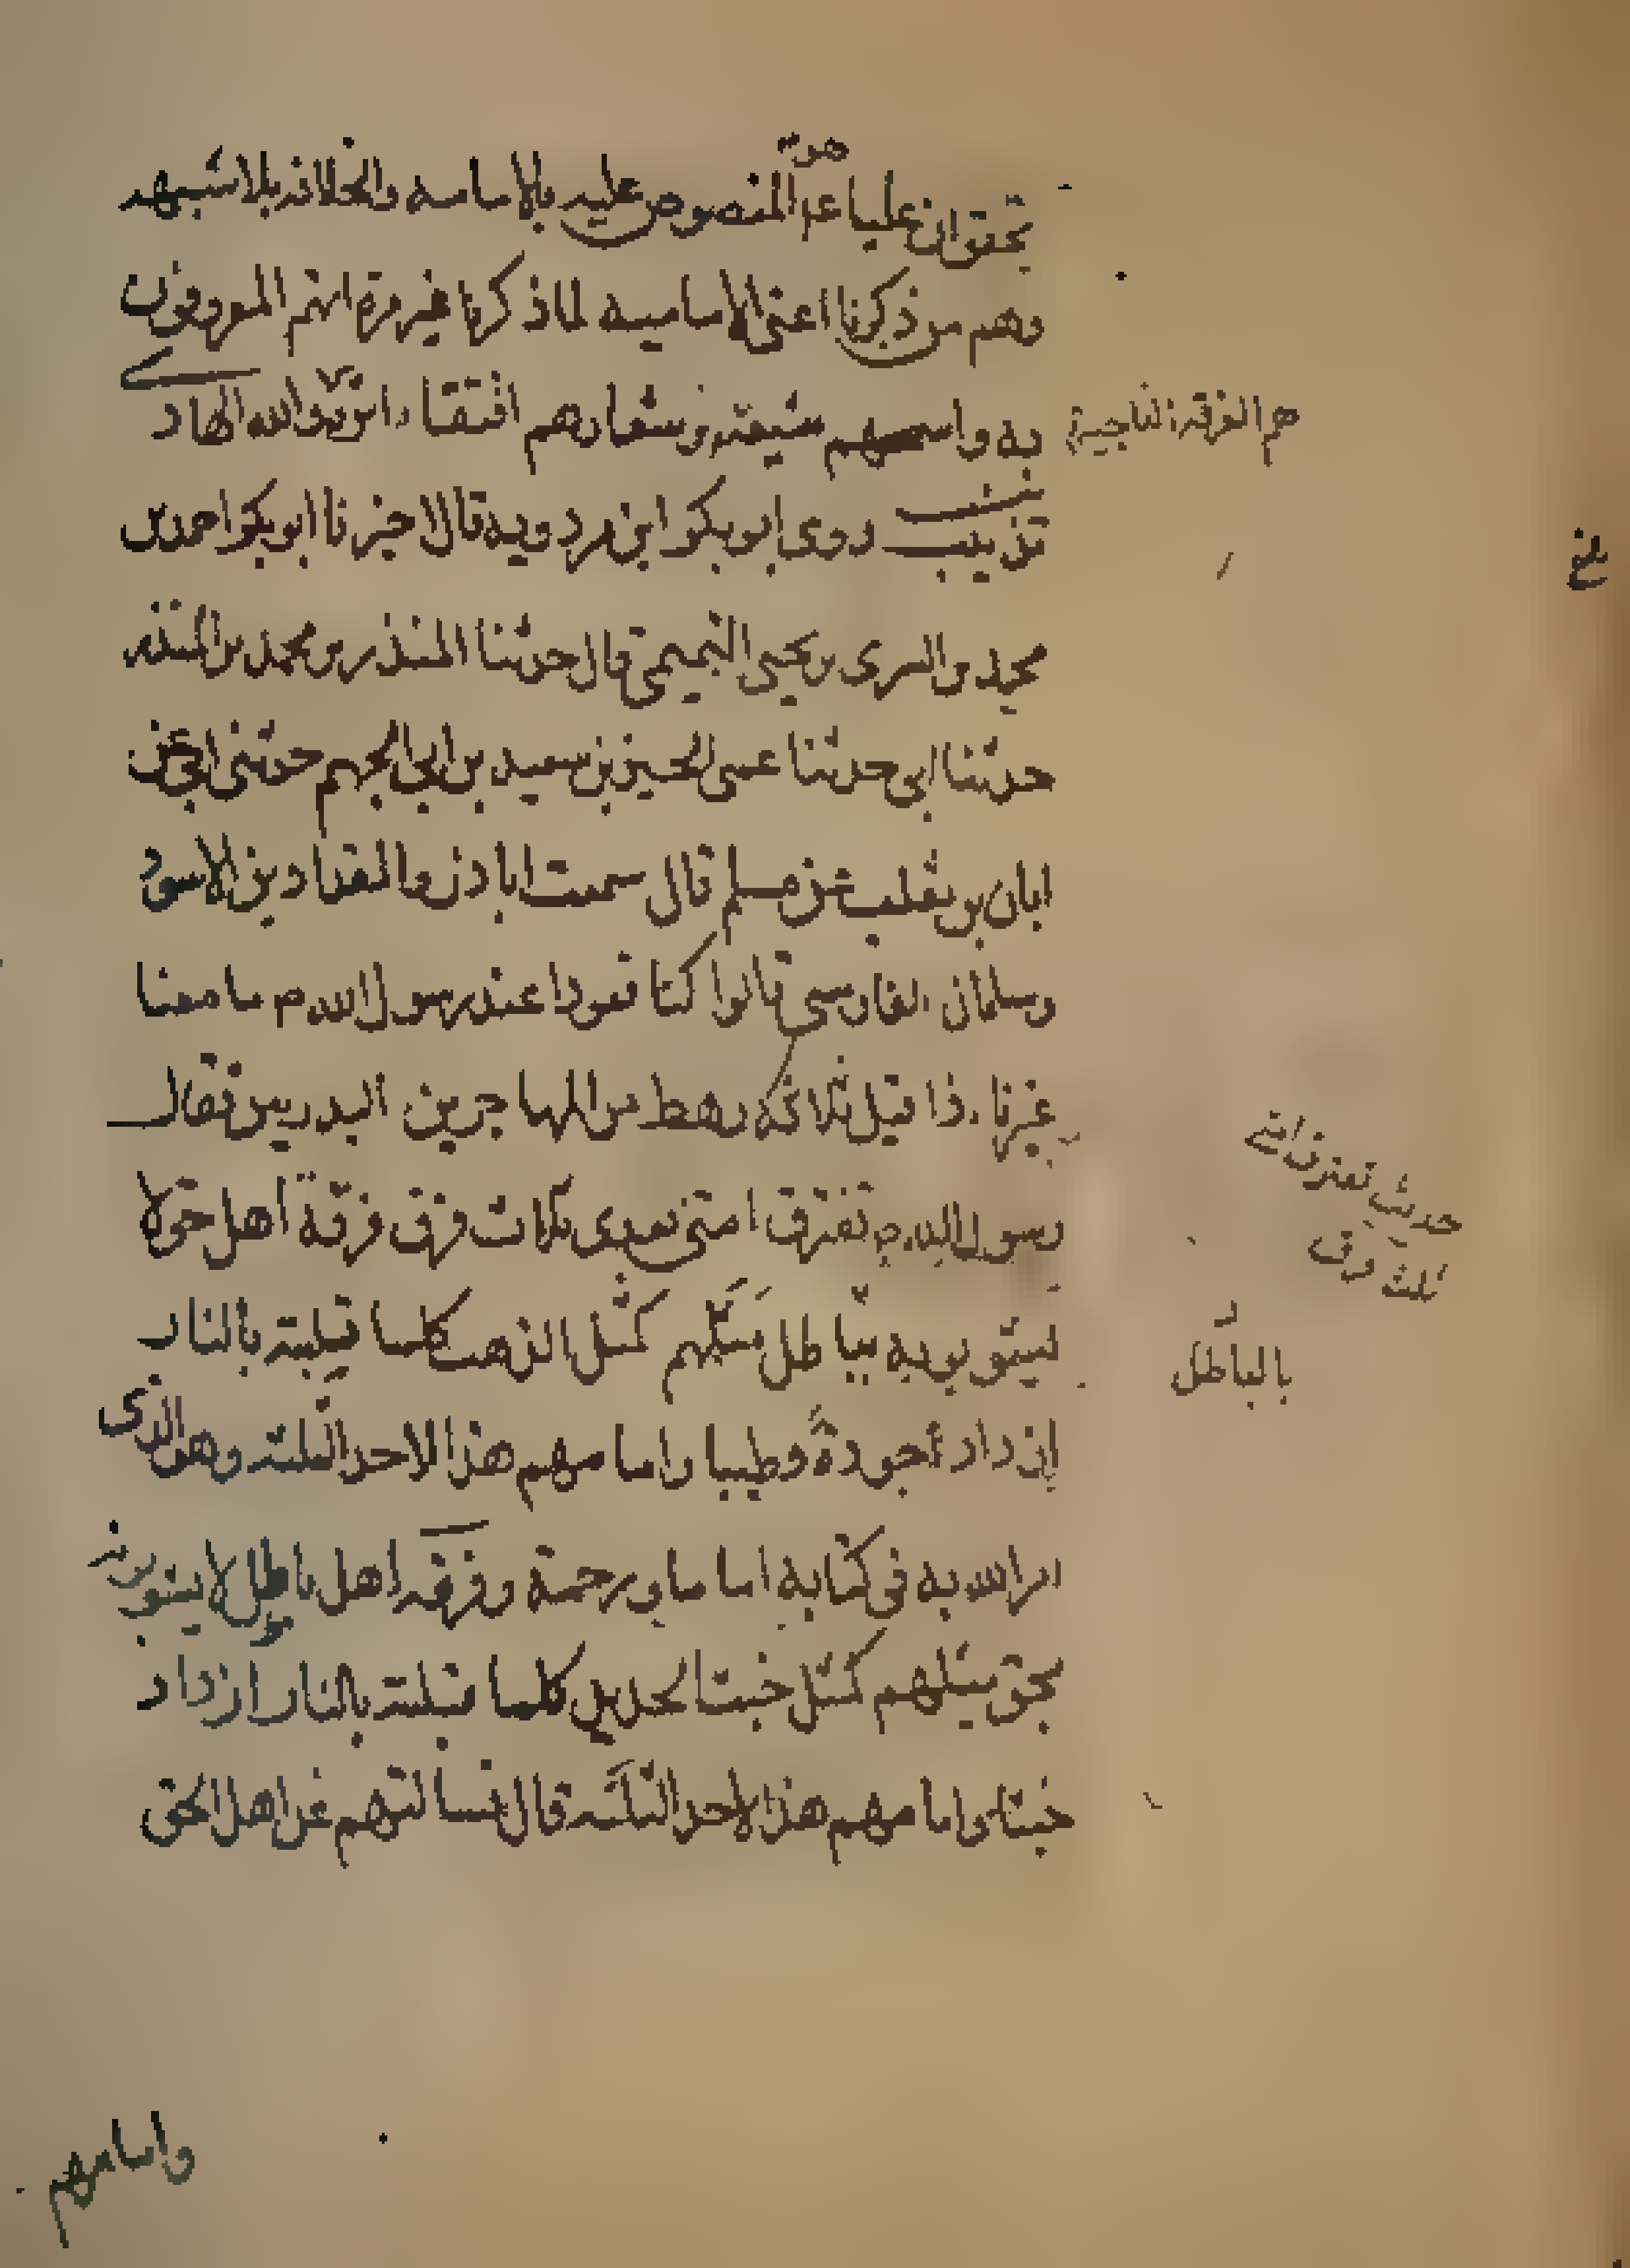 بحقوان عليا عم هو المنصوص عليه بالامامه والخلافه بلا شبهه
وهم من ذكرنا اعنى الاماميه لما ذكرنا غير مرة انهم المعروفون
به واسمهم شيعته وشعارهم اقتفاء اثره والله الهاد ے
هم الفرقة الناجية
تذنيب روى ابو بكر ابن مردويه قال اخبرنا ابو بكر احمد بن
محمد بن السرى بن يحيى التميمى قال حدثنا المنذر بن محمد بن المنذر
حدثنا ابى حدثنا عمى الحسين بن سعيد بن ابى الجهم حدثنى ابى عن
ابان بن تغلب عن مسلم قال سمعت ابا ذر والمقداد بن الاسود
وسلمان الفارسى قالوا كنا قعودا عند رسول الله ص ما معنا
غيرنا اذا قبل ثلاثة رهط من المهاجرين البدريين فقال
رسول الله ص تفترق امتى بعدى ثلاث فرق فرقة اهل حق لا
حديث تفترق امتى
ثلث فرق
يشوبونه بباطل مثلهم كمثل الذهب كلما فتنته بالنار
بالباطل
ازداد جودة وطيبا وامامهم هذا لاحد الثلثه وهو الذى
امر الله به فى كتابه اماما ورحمة وفرقه اهل باطل لا يشوبونه
بحق مثلهم كمثل خبث الحديد كلما فتنته بالنار ازداد
خبثا وامامهم هذا لاحد الثلثه قال فسالتهم عن اهل الحق
وامامهم